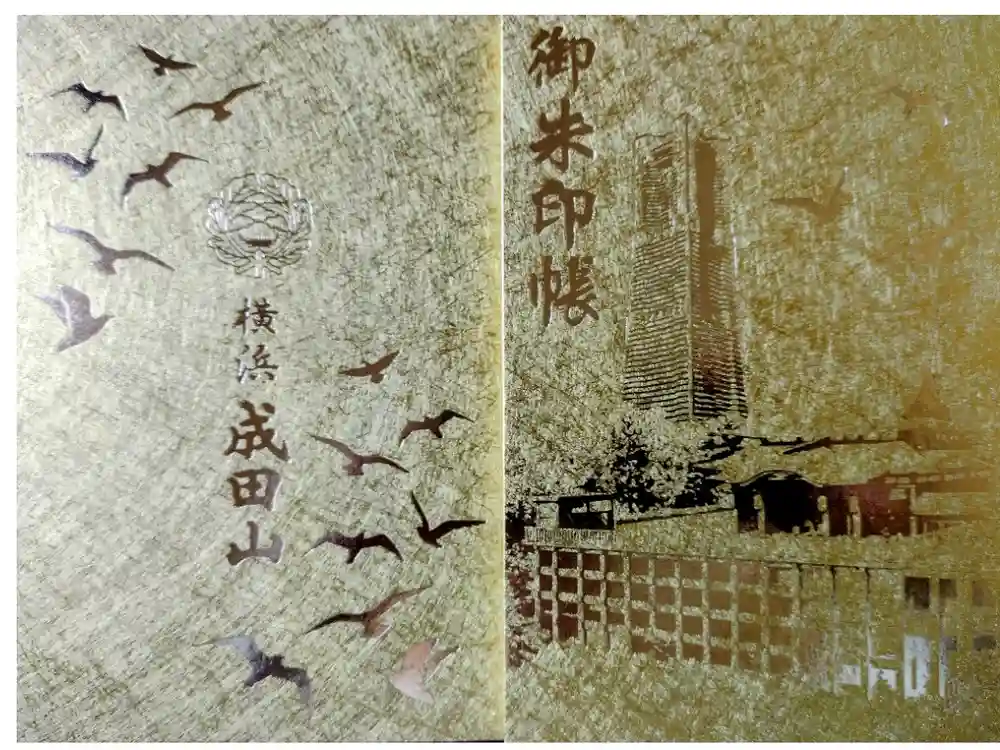 御朱印帳
横浜
成田山